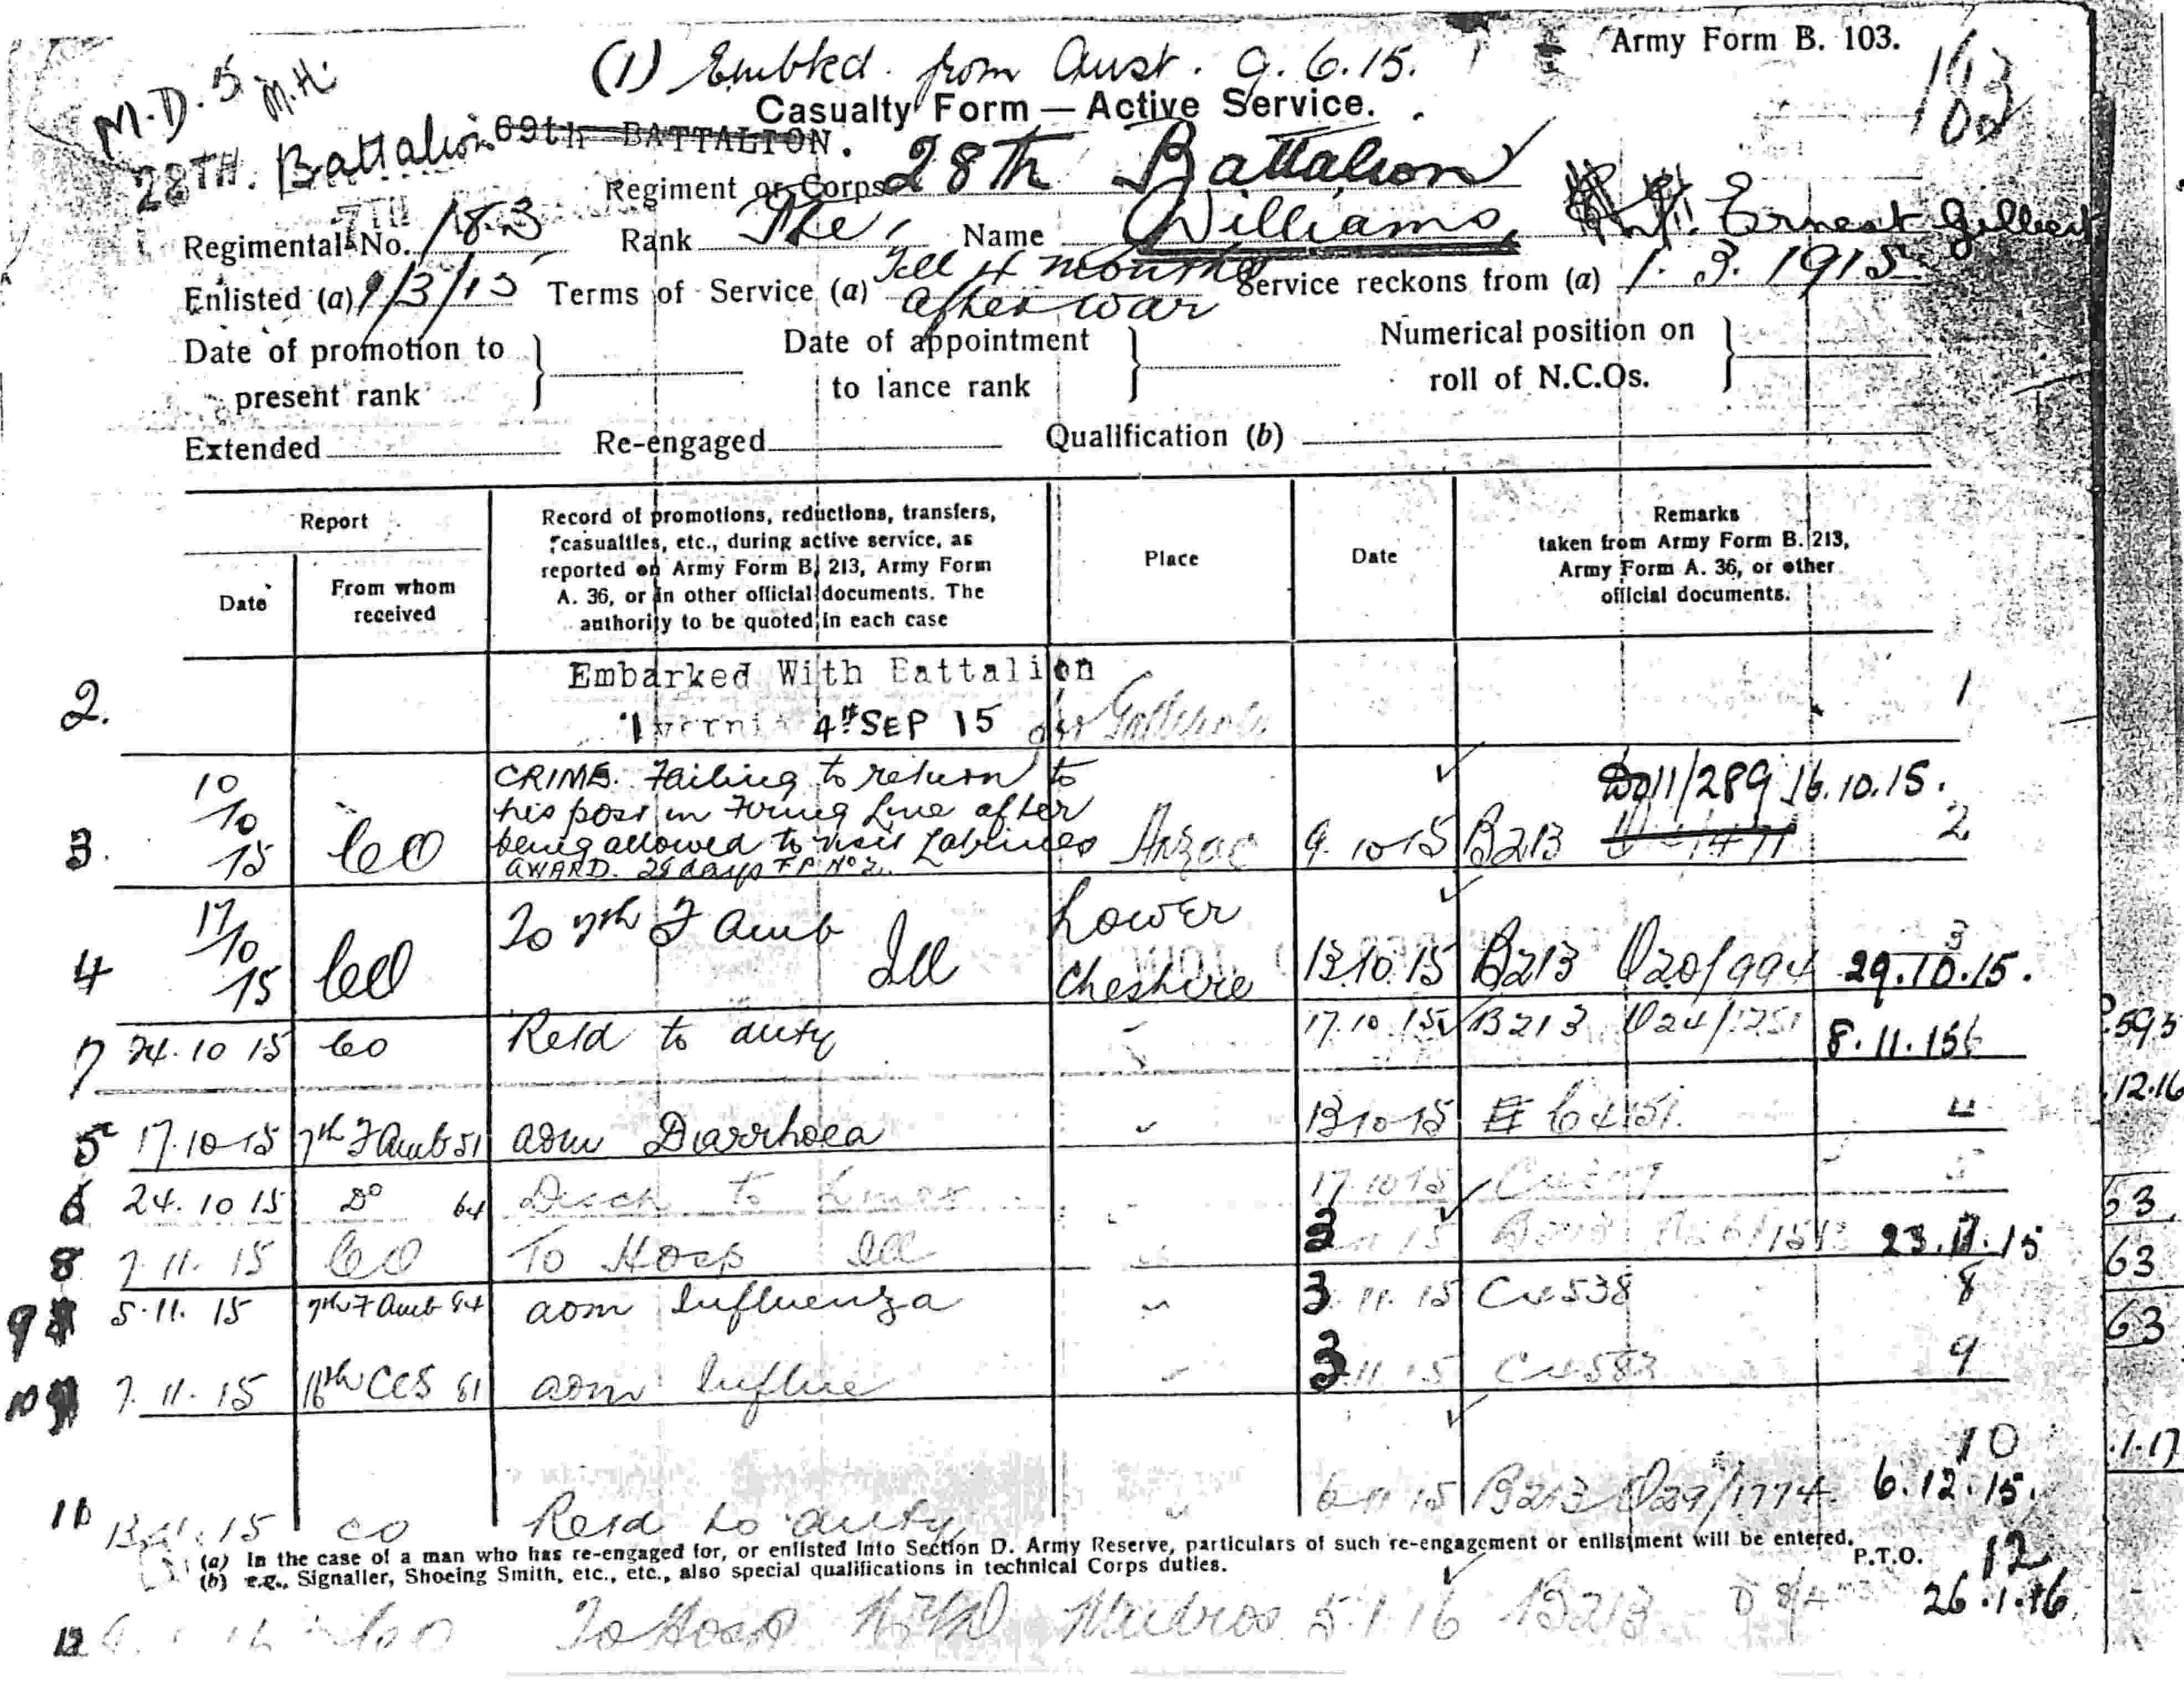 Army Form B. 103.
(1) Embkd. from Aust. 9.6.15.
M.D. 5 M.H.
Casualty Form — Active Service.
28TH. Battalion 69th BATTALION.
Regiment or Corps 28th Battalion
Regimental No. 183 Rank Pte, Name Williams, Ernest Gilbert
Enlisted (a) 1/3/15 Terms of Service (a) Till 4 months after war Service reckons from (a) 1. 3. 1915
Date of promotion to present rank } Date of appointment to lance rank } Numerical position on roll of N.C.Os. }
Extended Re-engaged Qualification (b)
Report
Date
From whom received
Record of promotions, reductions, transfers,
casualties, etc., during active service, as
reported on Army Form B. 213, Army Form
A. 36, or in other official documents. The
authority to be quoted in each case
Place
Date
Remarks
taken from Army Form B. 213,
Army Form A. 36, or other
official documents.
2. Embarked With Battalion 1
4th SEP 15 for Gallipoli
3. 10/10/15 CO CRIME. Failing to return to
his post in Firing Line after
being allowed to visit Latrines
AWARD. 28 days F P No 2. Anzac 9. 10 15 B213 DO11/289 16.10.15. 2
4 17/10/15 CO To 7th F Amb Ill Lower Cheshire 13.10.15 B213 O20/994 3 29.10.15.
7 24. 10 15 CO Retd to duty " 17.10.15 B213 O24/1251 8.11.15 6
5 17.10 15 7th F Amb 51 adm Diarrhoea " 13 10 15 4
6 24. 10 15 Do 64 Disch to Lines " 17 10 15 5
8 7. 11. 15 CO To Hosp Ill " 3 11 15 23.11.15
9 5. 11. 15 7th F Amb 84 adm Influenza " 3. 11. 15 Cv 538 8
10 7. 11. 15 16th CCS 81 adm Influe " 3 11 15 Cv 583 9
11 13.11.15 CO Retd to duty " 6 11 15 B213 O29/1774 10 6.12.15.
(a) In the case of a man who has re-engaged for, or enlisted into Section D. Army Reserve, particulars of such re-engagement or enlistment will be entered.
(b) e.g., Signaller, Shoeing Smith, etc., etc., also special qualifications in technical Corps duties.
P.T.O.
12 CO To Hosp Mudros 5.1.16 B213 12 26.1.16